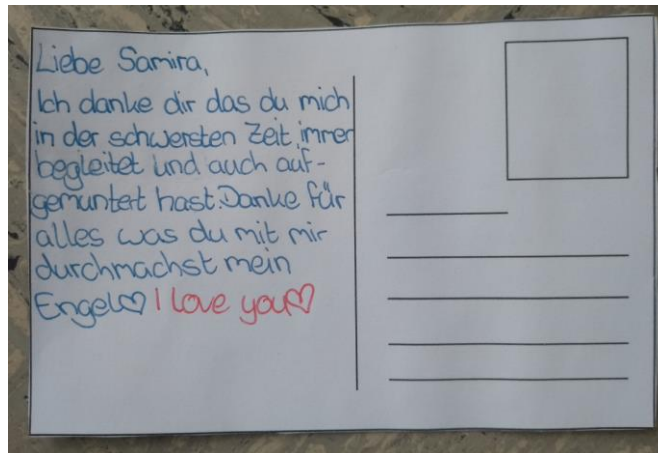 Liebe Samira,
Ich danke dir das du mich
in der schwersten Zeit immer
begleitet und auch auf-
gemuntert hast. Danke für
alles was du mit mir
durchmachst mein
Engel♡ I love you♡